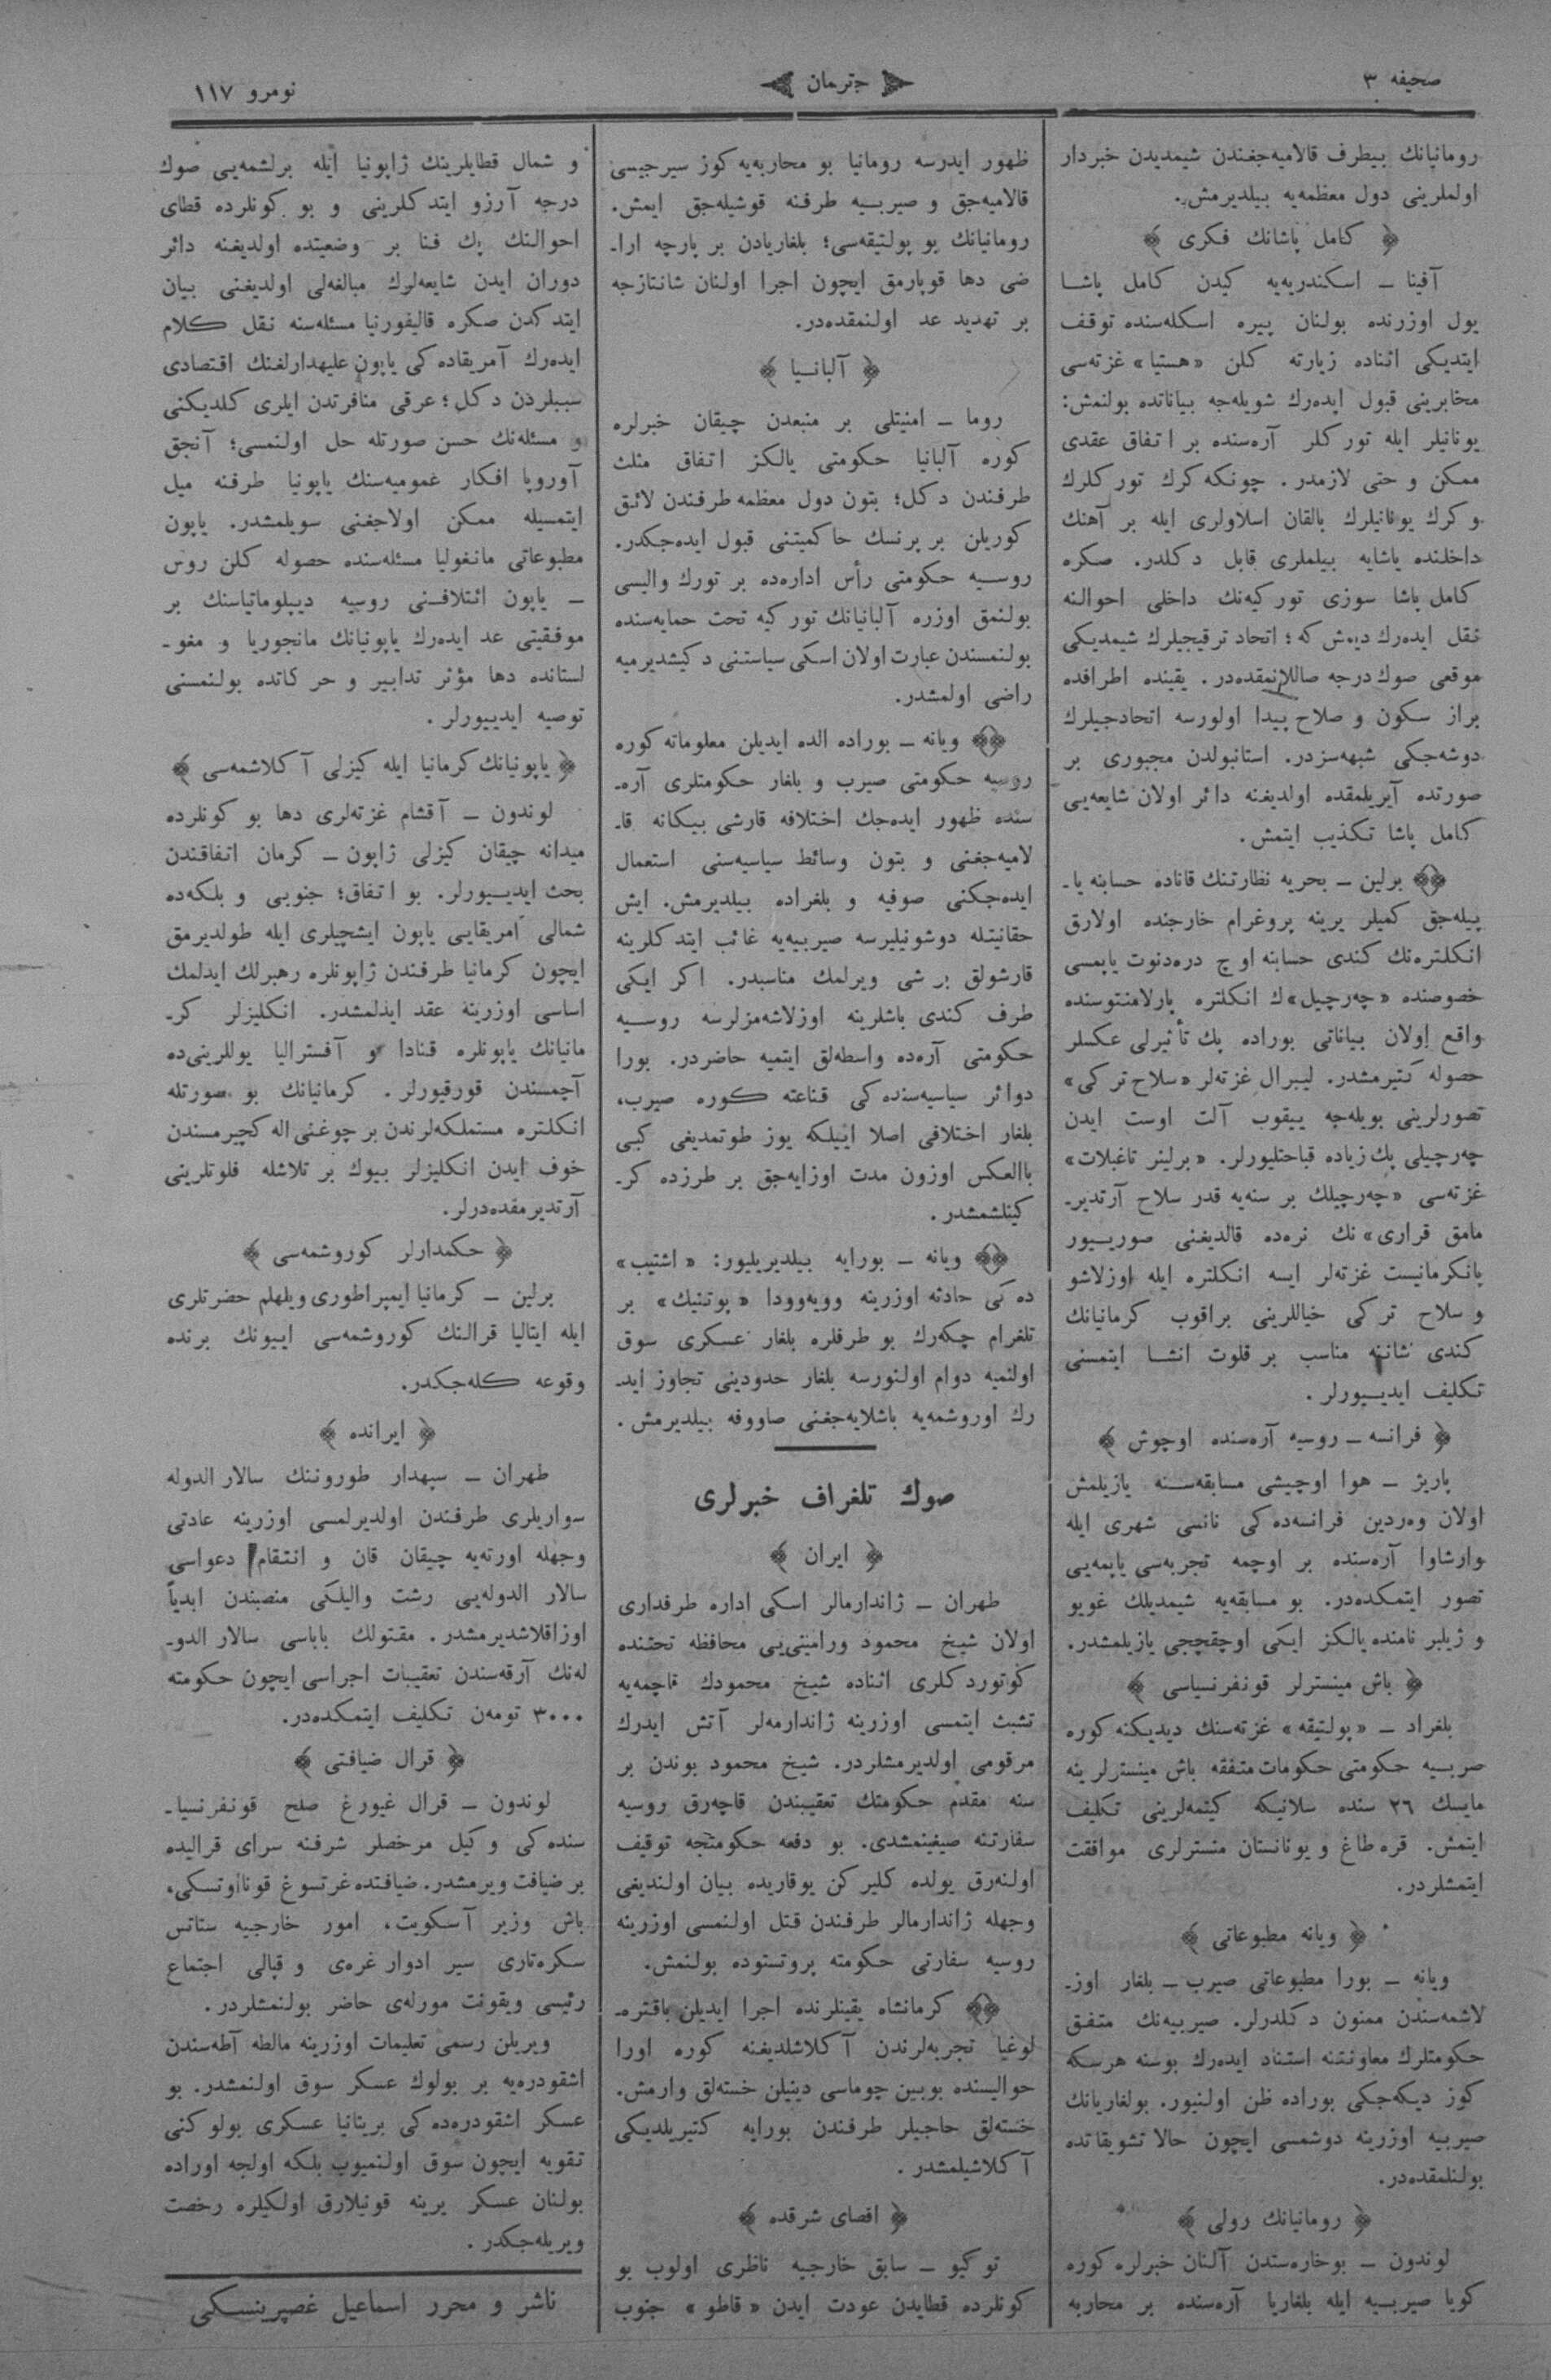 صحیفه ۳
ترجمان
نومرو ۱۱۷
رومانیانك بیطرف قالامیه‌جغندن شیمدیدن خبردار
اولملرینی دول معظمه‌یه بیلدیرمش.
﴿ كامل پاشانك فكری ﴾
آفینا – اسكندریه‌یه كیدن كامل پاشا
یول اوزرنده بولنان پیره اسكله‌سنده توقف
ایتدیكی اثناده زیارته كلن «هستیا» غزته‌سی
مخابرینی قبول ایده‌رك شویله‌جه بیاناتده بولنمش:
یونانیلر ایله توركلر آره‌سنده بر اتفاق عقدی
ممكن و حتی لازمدر. چونكه كرك توركلرك
و كرك یونانیلرك بالقان اسلاولری ایله بر آهنك
داخلنده یاشایه بیلملری قابل دكلدر. صكره
كامل پاشا سوزی توركیه‌نك داخلی احوالنه
نقل ایده‌رك دیمش كه؛ اتحاد ترقیجیلرك شیمدیكی
موقعی صوك درجه صاللانمقده‌در. یقینده اطرافده
براز سكون و صلاح پیدا اولورسه اتحادجیلرك
دوشه‌جكی شبهه‌سزدر. استانبولدن مجبوری بر
صورتده آیریلمقده اولدیغنه دائر اولان شایعه‌یی
كامل پاشا تكذیب ایتمش.
﴿﴾ برلین – بحریه نظارتنك قاناده حسابنه یا-
پیله‌جق كمیلر یرینه پروغرام خارجنده اولارق
انكلتره‌نك كندی حسابنه اوچ دره‌دنوت یاپمسی
خصوصنده «چه‌رچیل»ك انكلتره پارلامنتوسنده
واقع اولان بیاناتی بوراده پك تأثیرلی عكسلر
حصوله كتیرمشدر. لیبرال غزته‌لر «سلاح تركی»
تصورلرینی بویله‌چه ییقوب آلت اوست ایدن
چه‌رچیلی پك زیاده قباحتلیورلر. «برلینر تاغبلات»
غزته‌سی «چه‌رچیلك بر سنه‌یه قدر سلاح آرتدیر-
مامق قراری» نك نره‌ده قالدیغنی صوریـیور
پانكرمانیست غزته‌لر ایسه انكلتره ایله اوزلاشو
و سلاح تركی خیاللرینی براقوب كرمانیانك
كندی شاننه مناسب بر فلوت انشا ایتمسنی
تكلیف ایدیـیورلر.
﴿ فرانسه – روسیه آره‌سنده اوچوش ﴾
پاریژ – هوا اوچیشی مسابقه‌سنه یازیلمش
اولان وه‌ردین فرانسه‌ده‌كی نانسی شهری ایله
وارشاوا آره‌سنده بر اوچمه تجربه‌سی یاپمه‌یی
تصور ایتمكده‌در. بو مسابقه‌یه شیمدیلك غویو
و ژیلبر نامنده یالكز ایكی اوچقچی یازیلمشدر.
﴿ باش مینسترلر قونفرنسیاسی ﴾
بلغراد – «پولتیقه» غزته‌سنك دیدیكنه كوره
صربـیه حكومتی حكومات متفقه باش مینسترلرینه
مایسك ۲۶ سنده سلانیكه كیتمه‌لرینی تكلیف
ایتمش. قره طاغ و یونانستان منسترلری موافقت
ایتمشلردر.
﴿ ویانه مطبوعاتی ﴾
ویانه – بورا مطبوعاتی صیرب – بلغار اوز-
لاشمه‌سندن ممنون دكلدرلر. صیربیه‌نك متفق
حكومتلرك معاونتنه استناد ایده‌رك بوسنه هرسكه
كوز دیكه‌جكی بوراده ظن اولنیور. بولغاریانك
صیربیه اوزرینه دوشمسی ایچون حالا تشویقاتده
بولنلمقده‌در.
﴿ رومانیانك رولی ﴾
لوندون – بوخارستدن آلنان خبرلره كوره
كویا صیربـیه ایله بلغاریا آره‌سنده بر محاربه
ظهور ایدرسه رومانیا بو محاربه‌یه كوز سیرجیسی
قالامیه‌جق و صیربـیه طرفنه قوشیله‌جق ایمش.
رومانیانك بو پولتیقه‌سی؛ بلغاریادن بر پارچه ارا-
ضی دها قوپارمق ایچون اجرا اولنان شانتازجه
بر تهدید عد اولنمقده‌در.
﴿ آلبانـیا ﴾
روما – امنیتلی بر منبعدن چیقان خبرلره
كوره آلبانیا حكومتی یالكز اتفاق مثلث
طرفندن دكل؛ بتون دول معظمه طرفندن لائق
كوریلن بر پرنسك حاكمیتنی قبول ایده‌جكدر.
روسـیه حكومتی رأس اداره‌ده بر تورك والیسی
بولنمق اوزره آلبانیانك توركیه تحت حمایه‌سنده
بولنمسندن عبارت اولان اسكی سیاستنی دكیشدیرمیه
راضی اولمشدر.
﴿﴾ ویانه – بوراده الده ایدیلن معلوماته كوره
روسیه حكومتی صیرب و بلغار حكومتلری آره-
سنده ظهور ایده‌جك اختلافه قارشی بیكانه قا-
لامیه‌جغنی و بتون وسائط سیاسیه‌سنی استعمال
ایده‌جكنی صوفیه و بلغراده بیلدیرمش. ایش
حقانیتله دوشونیلیرسه صیربیه‌یه غائب ایتدكلرینه
قارشولق بر شی ویرلمك مناسبدر. اكر ایكی
طرف كندی باشلرینه اوزلاشه‌مزلرسه روسـیه
حكومتی آره‌ده واسطه‌لق ایتمیه حاضردر. بورا
دوائر سیاسیه‌سنده‌كی قناعته كوره صیرب،
بلغار اختلافی اصلا اییلكه یوز طوتمدیغی كبی
باالعكس اوزون مدت اوزایه‌جق بر طرزده كر-
كینلشمشدر.
﴿﴾ ویانه – بورایه بیلدیریلیور: «اشتیب»
ده‌كی حادثه اوزرینه وویه‌وودا «پوتنیك» بر
تلغرام چكه‌رك بو طرفلره بلغار عسكری سوق
اولنمیه دوام اولنورسه بلغار حدودینی تجاوز اید-
رك اوروشمه‌یه باشلایه‌جغنی صاووفه بیلدیرمش.
صوك تلغراف خبرلری
﴿ ایران ﴾
طهران – ژاندارمالر اسكی اداره طرفداری
اولان شیخ محمود ورامینی‌یی محافظه تحتنده
كوتوردكلری اثناده شیخ محمودك قاچمه‌یه
تشبث ایتمسی اوزرینه ژاندارمه‌لر آتش ایدرك
مرقومی اولدیرمشلردر. شیخ محمود بوندن بر
سنه مقدم حكومتك تعقیبندن قاچه‌رق روسیه
سفارتنه صیغینمشدی. بو دفعه حكومتجه توقیف
اولنه‌رق یولده كلیركن یوقاریده بیان اولندیغی
وجهله ژاندارمالر طرفندن قتل اولنمسی اوزرینه
روسیه سفارتی حكومته پروتستوده بولنمش.
﴿﴾ كرمانشاه یقینلرنده اجرا ایدیلن باقتره-
لوغیا تجربه‌لرندن آكلاشلدیغنه كوره اورا
حوالیسنده بوبین چوماسی دینیلن خسته‌لق وارمش.
خسته‌لق حاجیلر طرفندن بورایه كتیریلدیكی
آكلاشیلمشدر.
﴿ اقصای شرقده ﴾
توكیو – سابق خارجیه ناظری اولوب بو
كونلرده قطایدن عودت ایدن «قاطو» جنوب
و شمال قطایلرینك ژاپونیا ایله برلشمه‌یی صوك
درجه آرزو ایتدكلرینی و بو كونلرده قطای
احوالنك پك فنا بر وضعیتده اولدیغنه دائر
دوران ایدن شایعه‌لرك مبالغه‌لی اولدیغنی بیان
ایتدكدن صكره قالیفورنیا مسئله‌سنه نقل كلام
ایده‌رك آمریقاده‌كی یاپون علیهدارلغنك اقتصادی
سببلردن دكل؛ عرقی منافرتدن ایلری كلدیكنی
و مسئله‌نك حسن صورتله حل اولنمسی؛ آنجق
آوروپا افكار عمومیه‌سنك یاپونیا طرفنه میل
ایتمسیله ممكن اولاجغنی سویلمشدر. یاپون
مطبوعاتی مانغولیا مسئله‌سنده حصوله كلن روس
– یاپون ائتلافـنی روسیه دیپلوماتیاسنك بر
موفقیتی عد ایده‌رك یاپونیانك مانجوریا و مغو-
لستانده دها مؤثر تدابیر و حركاتده بولنمسنی
توصیه ایدییورلر.
﴿ یاپونیانك كرمانیا ایله كیزلی آكلاشمه‌سی ﴾
لوندون – آقشام غزته‌لری دها بو كونلرده
میدانه چیقان كیزلی ژاپون – كرمان اتفاقندن
بحث ایدیـیورلر. بو اتفاق؛ جنوبی و بلكه‌ده
شمالی آمریقایی یاپون ایشچیلری ایله طولدیرمق
ایچون كرمانیا طرفندن ژاپونلره رهبرلك ایدلمك
اساسی اوزرینه عقد ایدلمشدر. انكلیزلر كر-
مانیانك یاپونلره قنادا و آفسترالیا یوللرینی‌ده
آچمسندن قورقیورلر. كرمانیانك بو صورتله
انكلتره مستملكه‌لرندن بر چوغنی اله كچیرمسندن
خوف ایدن انكلیزلر بیوك بر تلاشله فلوتلرینی
آرتدیرمقده‌درلر.
﴿ حكمدارلر كوروشمه‌سی ﴾
برلین – كرمانیا ایمپراطوری ویلهلم حضرتلری
ایله ایتالیا قرالنك كوروشمه‌سی ایـیونك برنده
وقوعه كله‌جكدر.
﴿ ایرانده ﴾
طهران – سپهدار طوروننك سالار الدوله
سواریلری طرفندن اولدیرلمسی اوزرینه عادتی
وجهله اورته‌یه چیقان قان و انتقام دعواسی
سالار الدوله‌یی رشت والیلكی منصبندن ابدیاً
اوزاقلاشدیرمشدر. مقتولك باباسی سالار الدو-
له‌نك آرقه‌سندن تعقیبات اجراسی ایچون حكومته
۳۰۰۰ تومه‌ن تكلیف ایتمكده‌در.
﴿ قرال ضیافتی ﴾
لوندون – قرال غیورغ صلح قونفرنسیا-
سنده‌كی وكیل مرخصلر شرفنه سرای قرالیده
بر ضیافت ویرمشدر. ضیافتده غرتسوغ قوناوتسكی،
باش وزیر آسكویت، امور خارجیه ستاتس
سكره‌تاری سیر ادوار غره‌ی و قپالی اجتماع
رئیسی ویقونت مورله‌ی حاضر بولنمشلردر.
ویریلن رسمی تعلیمات اوزرینه مالطه آطه‌سندن
اشقودره‌یه بر بولوك عسكر سوق اولنمشدر. بو
عسكر اشقودره‌ده‌كی بریتانیا عسكری بولوكنی
تقویه ایچون سوق اولنمیوب بلكه اولجه اوراده
بولنان عسكر یرینه قونیلارق اولكیلره رخصت
ویریله‌جكدر.
ناشر و محرر اسماعیل غصپرینسكی